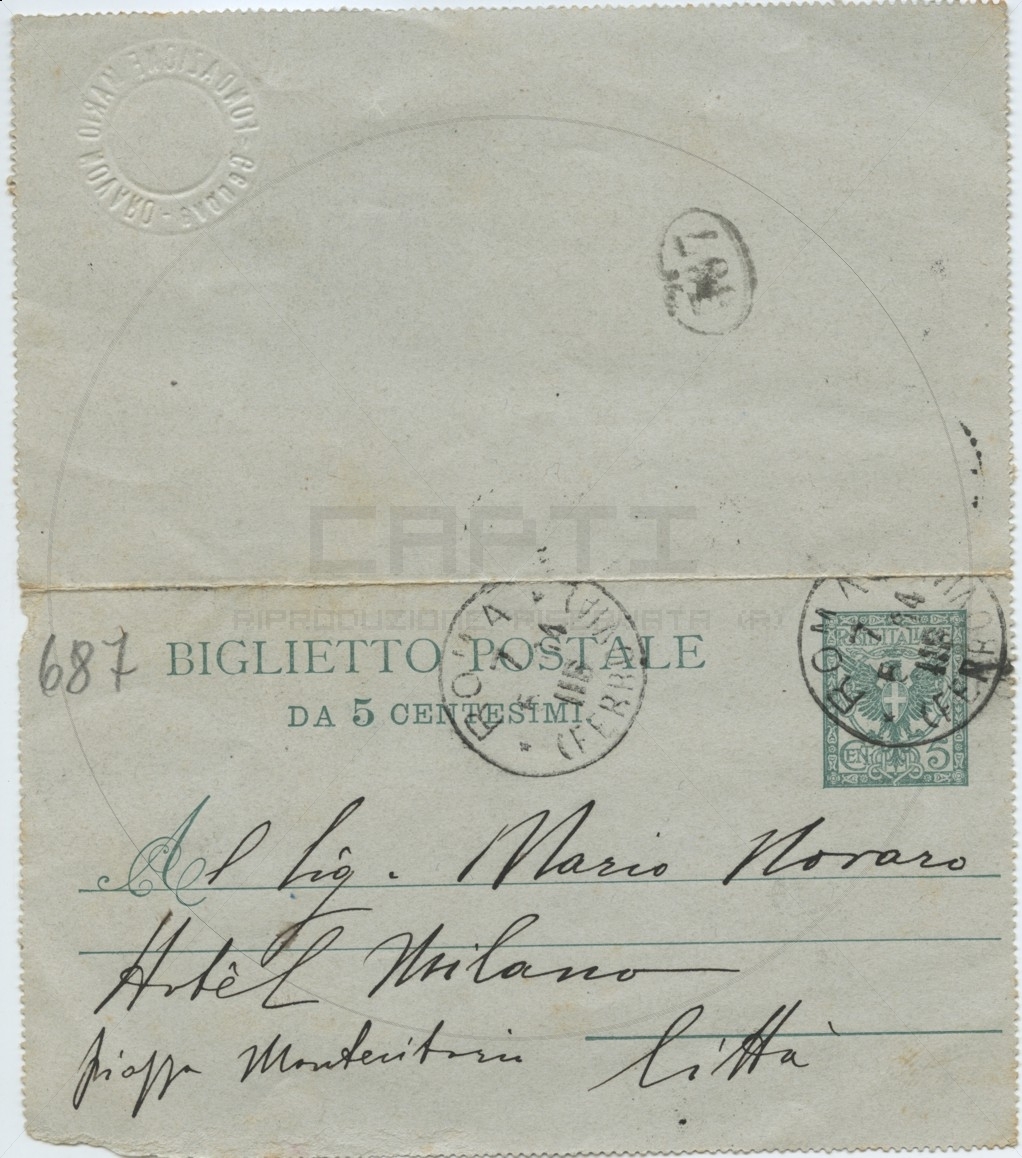 FONDAZIONE MARIO NOVARO - GENOVA -
487
CAPTI
RIPRODUZIONE RISERVATA (R)
687
BIGLIETTO POSTALE
DA 5 CENTESIMI
ROMA
7
(FERROVIA)
ROMA
7
(FERROVIA)
REGNO D'ITALIA
CENT. 5
Al Sig. Mario Novaro
Hotêl Milano
piazza Montecitorio
Città